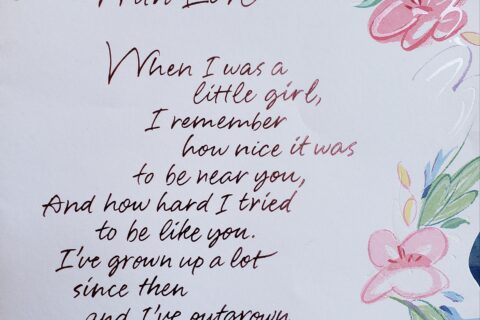 With Love
When I was a
little girl,
I remember
how nice it was
to be near you,
And how hard I tried
to be like you.
I've grown up a lot
since then
and I've outgrown